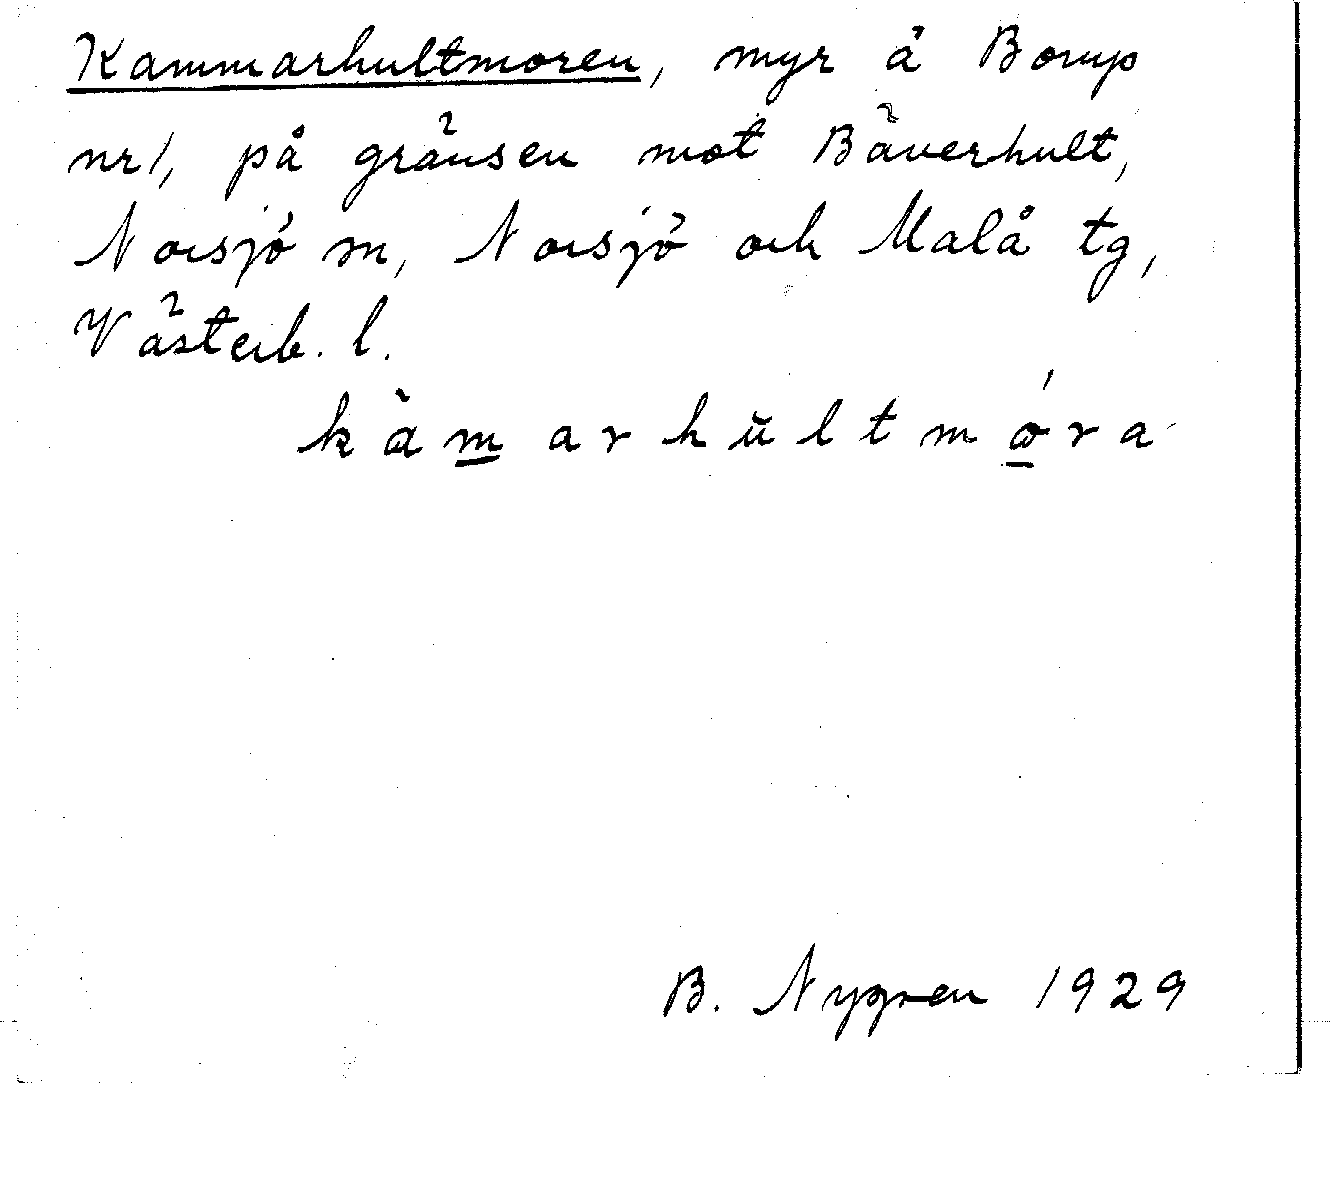 Kammarhultmoren, myr å Borup
nr 1, på gränsen mot Bäverhult,
Norsjö sn, Norsjö och Malå tg,
Västerb. l.
kàmarhŭltmóra
B. Nygren 1929